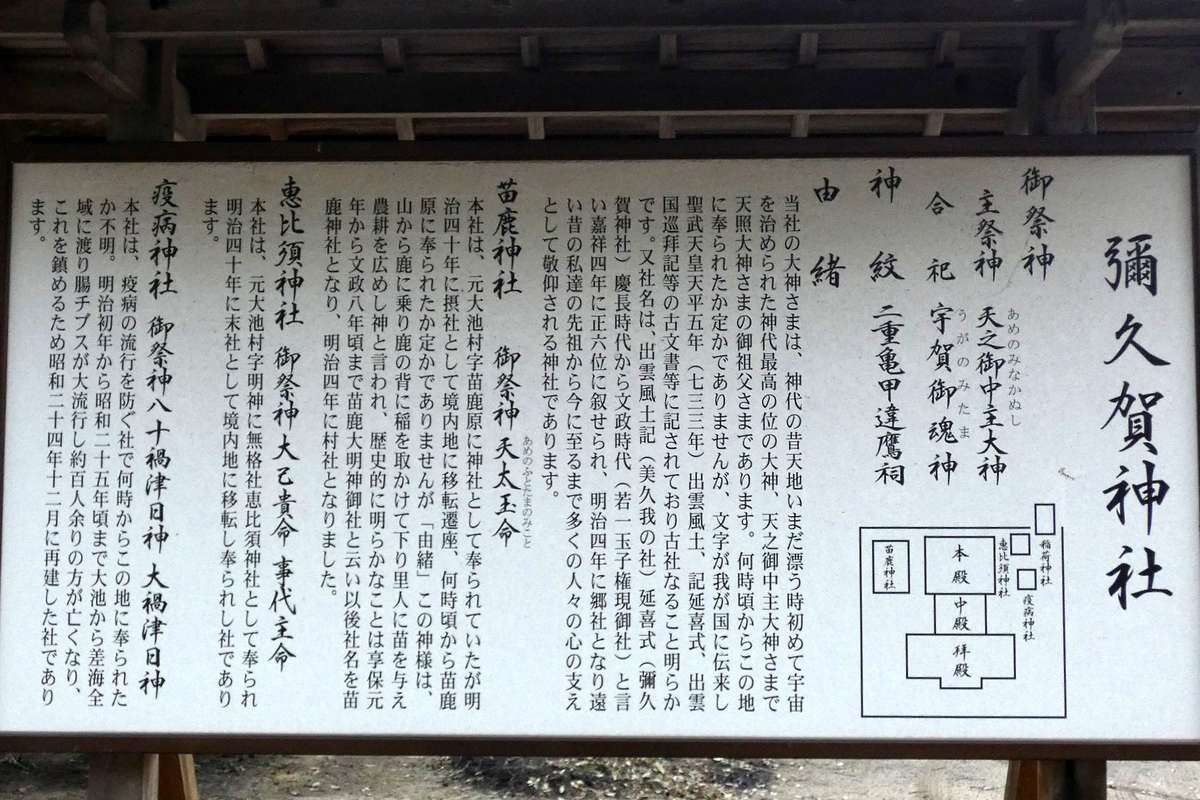 彌久賀神社
御祭神
主祭神 天之御中主大神
あめのみなかぬし
合祀 宇賀御魂神
うがのみたま
神紋 二重亀甲違鷹祠
由緒
当社の大神さまは、神代の昔天地いまだ漂う時初めて宇宙
を治められた神代最高の位の大神、天之御中主大神さまで
天照大神さまの御祖父さまであります。何時頃からこの地
に奉られたか定かでありませんが、文字が我が国に伝来し
聖武天皇天平五年（七三三年）出雲風土、記延喜式、出雲
国巡拜記等の古文書等に記されており古社なること明らか
です。又社名は、出雲風土記（美久我の社）延喜式（彌久
賀神社）慶長時代から文政時代（若一玉子権現御社）と言
い嘉祥四年に正六位に叙せられ、明治四年に郷社となり遠
い昔の私達の先祖から今に至るまで多くの人々の心の支え
として敬仰される神社であります。
苗鹿神社 御祭神 天太玉命
あめのふとたまのみこと
本社は、元大池村字苗鹿原に神社として奉られていたが明
治四十年に摂社として境内地に移転遷座、何時頃から苗鹿
原に奉られたか定かでありませんが「由緒」この神様は、
山から鹿に乗り鹿の背に稲を取かけて下り里人に苗を与え
農耕を広めし神と言われ、歴史的に明らかなことは享保元
年から文政八年頃まで苗鹿大明神御社と云い以後社名を苗
鹿神社となり、明治四年に村社となりました。
恵比須神社 御祭神 大己貴命 事代主命
本社は、元大池村字明神に無格社恵比須神社として奉られ
明治四十年に末社として境内地に移転し奉られし社であり
ます。
疫病神社 御祭神八十禍津日神 大禍津日神
本社は、疫病の流行を防ぐ社で何時からこの地に奉られた
か不明。明治初年から昭和二十五年頃まで大池から差海全
域に渡り腸チブスが大流行し約百人余りの方が亡くなり、
これを鎮めるため昭和二十四年十二月に再建した社であり
ます。
稲荷神社
恵比須神社
疫病神社
本殿
中殿
拜殿
苗鹿神社